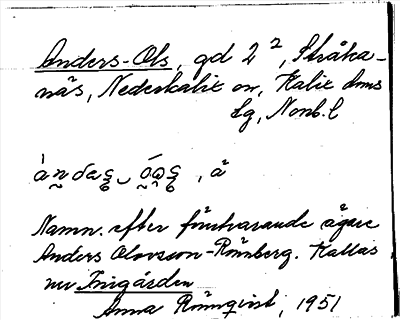 Anders-Ols, gd 2², Stråka-
näs, Nederkalix sn, Kalix dms
lg, Nonb. l
, å
Namn. efter förutvarande ägare
Anders Olovsson-Rönberg. Kallas
nu Frigården
Anna Rönnqvist, 1951